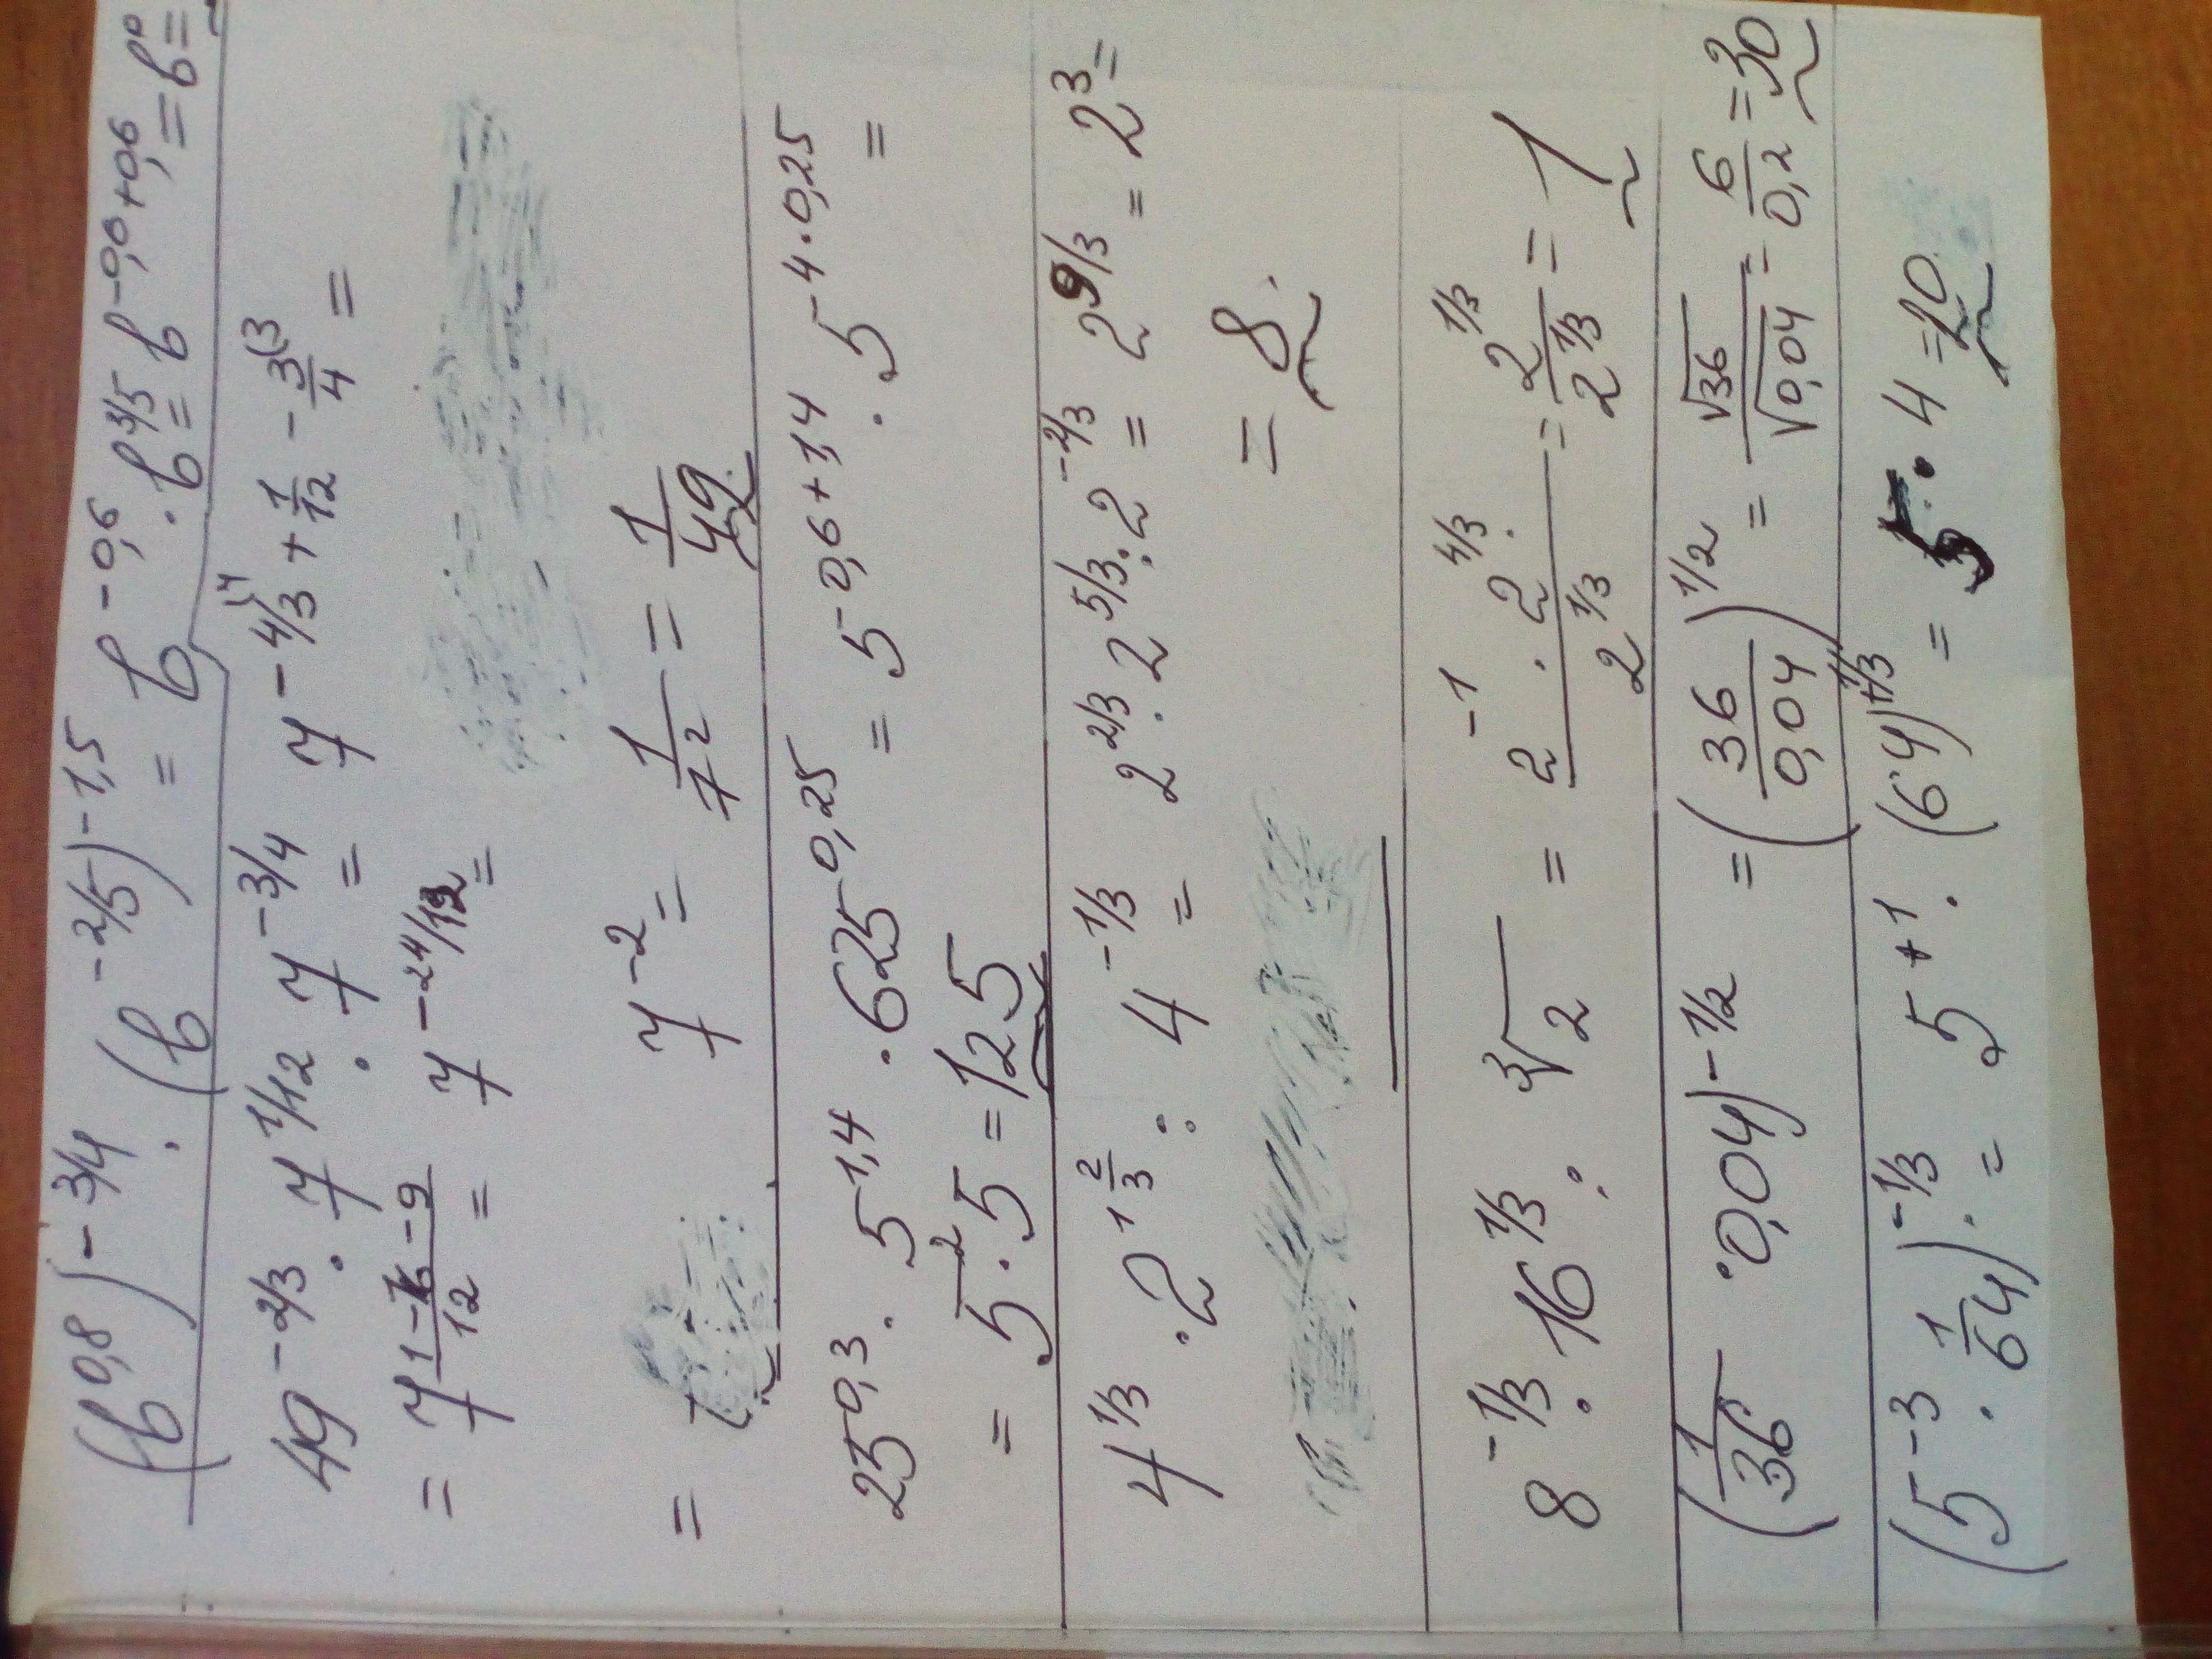 (b^0,8)^-3/4 · (b^-2/5)^-1,5 = b^-0,6 · b^3/5 = b^-0,6+0,6 = b^0 =
49^-2/3 · 7^1/12 · 7^-3/4 = 7^-4/3 + 1/12 - 3/4 =
= 7^(1-16-9)/12 = 7^-24/12 =
= 7^-2 = 1/7^2 = 1/49.
25^0,3 · 5^1,4 · 625^-0,25 = 5^-0,6+1,4 · 5^-4·0,25 =
= 5^2 · 5 = 125
4^1/3 · 2^1 2/3 : 4^-1/3 = 2^2/3 · 2^5/3 : 2^-2/3 = 2^9/3 = 2^3 =
= 8.
8^-1/3 · 16^1/3 : ∛2 = 2^-1 · 2^4/3 / 2^1/3 = 2^1/3 / 2^1/3 = 1
(1/36 · 0,04)^-1/2 = (36/0,04)^1/2 = √36/√0,04 = 6/0,2 = 30
(5^-3 · 1/64)^-1/3 = 5^+1 · (64)^+1/3 = 5 · 4 = 20